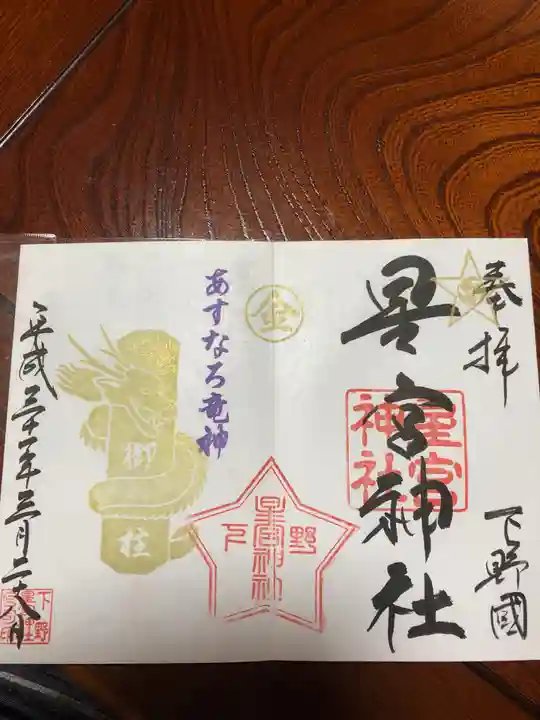 奉拝
下野國
星宮神社
星宮
神社
金
下野
星宮神社
あすなろ竜神
御柱
平成三十一年三月二十八日